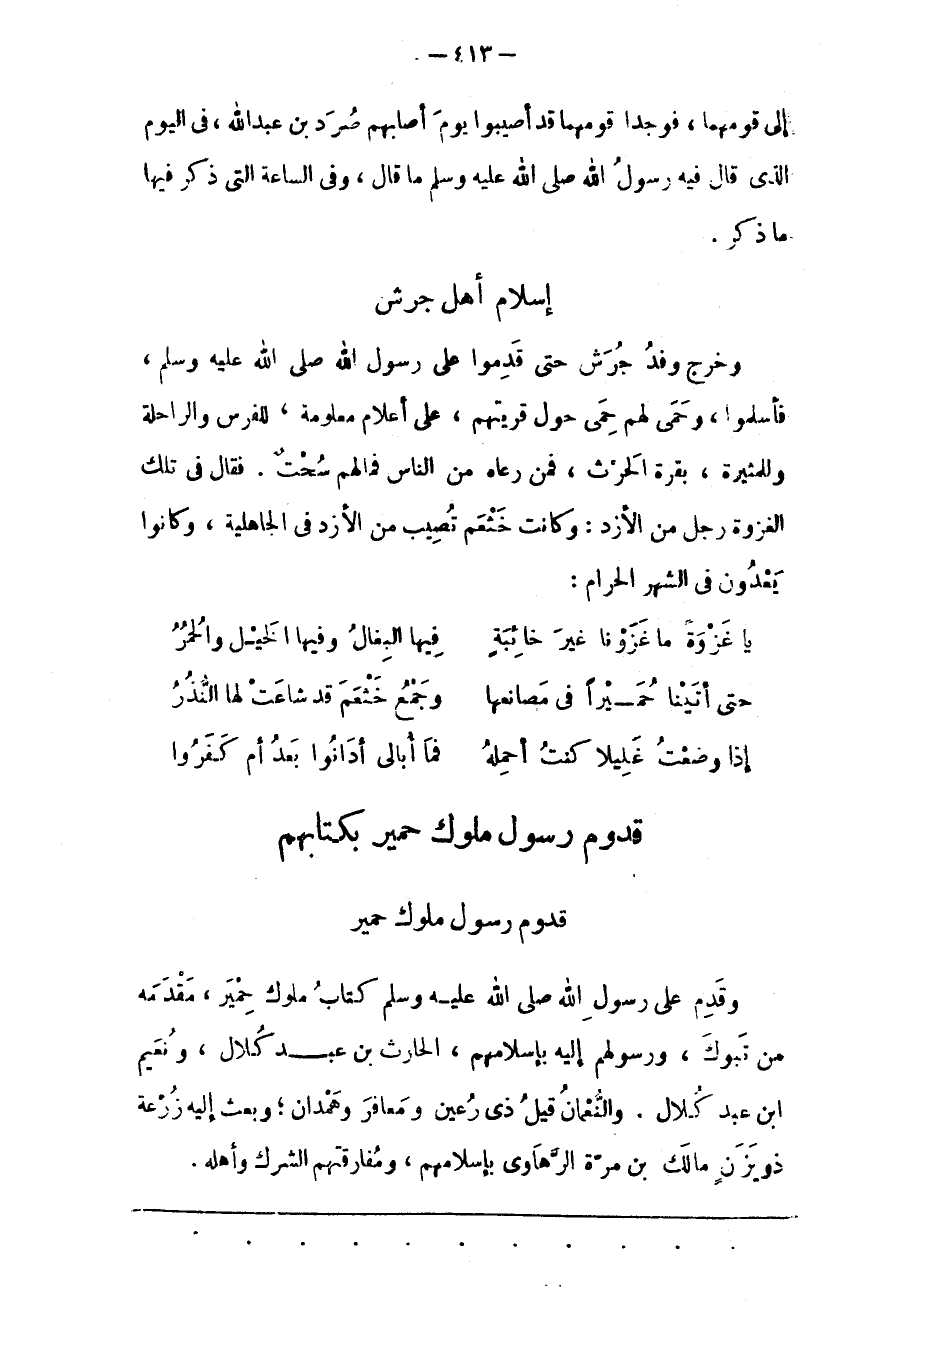 — ٤١٣ —
إلى قومهما ، فوجدا قومهما قد أصيبوا يومَ أصابهم صُرَد بن عبدالله ، فى اليوم
الذى قال فيه رسولُ الله صلى الله عليه وسلم ما قال ، وفى الساعة التى ذكر فيها
ما ذكر .
إسلام أهل جرش
وخرج وفدُ جُرَش حتى قَدِموا على رسول الله صلى الله عليه وسلم ،
فأسلموا ، وحَمَى لهم حِمَى حول قريتهم ، على أعلام معلومة ، للفرس والراحلة
وللمثيرة ، بقرة الحَرْث ، فمن رعاه من الناس فمالهم سُحْتٌ . فقال فى تلك
الغزوة رجل من الأزد : وكانت خَثْعَم تُصِيب من الأزد فى الجاهلية ، وكانوا
يَعْدُون فى الشهر الحرام :
يا غَزْوَةً ما غَزَوْنا غيرَ خائِبَةٍ فِيها البِغالُ وفيها الخَيْـل والحُمُرُ
حتى أتَيْنا حُمَــيْراً فى مَصانعها وجَمْعُ خَثْعَمَ قد شاعَتْ لها النُّذُرُ
إذا وضعْتُ غَلِيلا كنتُ أحمِلهُ فمَا أُبالى أدَانُوا بَعدُ أم كَفَرُوا
قدوم رسول ملوك حمير بكتابهم
قدوم رسول ملوك حمير
وقَدِم على رسول ِالله صلى الله عليـه وسلم كتابُ ملوك حِمْيَر ، مَقْدَمَه
من تَبوكَ ، ورسولهم إليه بإسلامهم ، الحارث بن عبــد كُلال ، ونُعَيم
ابن عبد كُلال . والنُّعْمانُ قيلُ ذى رُعين ومَعافرَ وهَمْدان ؛ وبعث إليه زُرْعة
ذو يَزَنٍ مالَك بن مرّة الرَّهاوى بإسلامهم ، ومُفارقتهم الشرك وأهله .